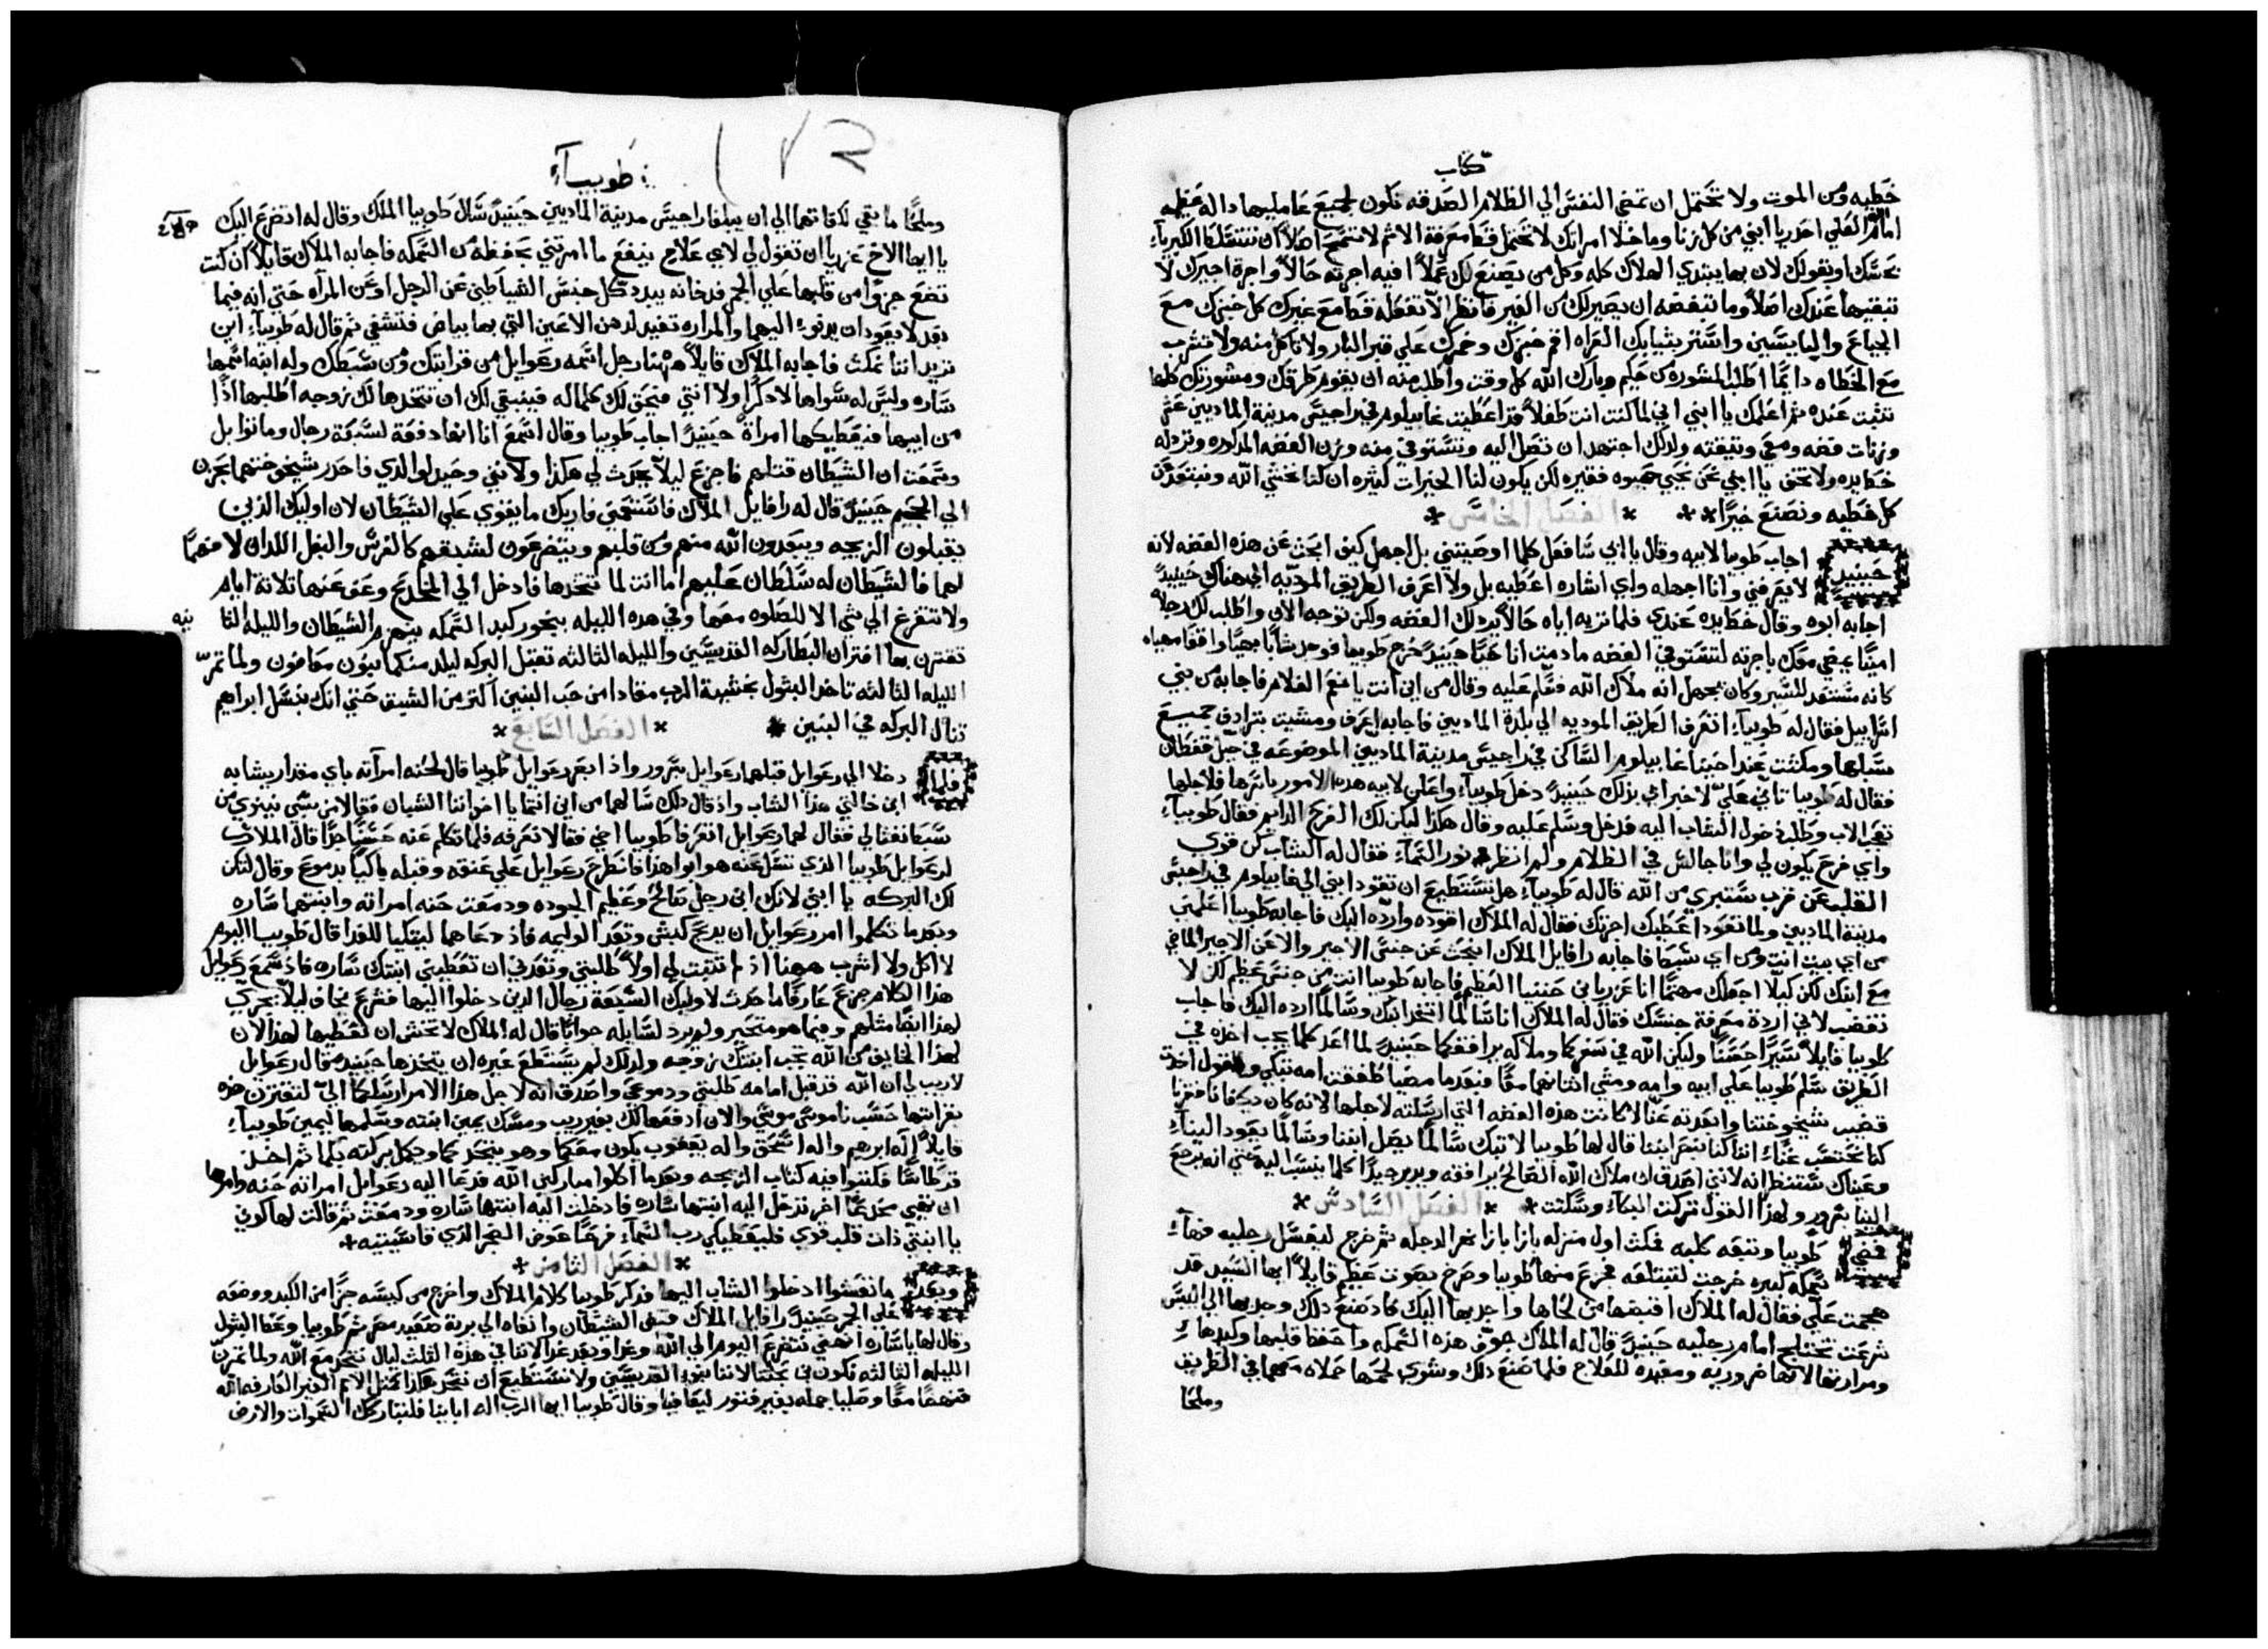 كتاب
خطيه ومن الموت ولا تحتمل ان تمضي النفس الي الظلام الصدقه تكون لجميع عامليها داله عظيمه
امام العلي احدر يا ابني من كل زنا وما خلا امراتك لا تحتمل قط معرفة الاثم لا تسمح اصلاً ان تتسلط الكبرياء
بحسك او بقولك لان بها يبتدي الهلاك كله وكل من يصنع لك عملاً اوفيه اجرته حالاً واجرة اجيرك لا
تبقيها عندك اصلاً وما تبغضه ان يصير لك من الغير فانظر الا تفعله قط مع غيرك كل خبزك مع
الجياع والبايسين واستر بثيابك العراه اقم خبزك وخمرك علي قبر البار ولا تاكل منه ولا تشرب
مع الخطاه دايماً اطلب المشوره من حكيم وبارك الله كل وقت واطلب منه ان يقوم طرقك ومشورتك كلها
تثبت عنده ثم اعلمك يا ابني اني لما كنت انت طفلاً قد اعطيت غابيلوس في راجيس مدينة الماديين عشر
وزنات فضه ومعي وثيقته ولدلك اجتهد ان تصل اليه وتستوفي منه وزن الفضه المدكوره وترد له
خط يده ولا تخف يا ابني نحن نحيي حيوه فقيره لكن يكون لنا الخيرات كثيره ان كنا نخشي الله ونبتعد عن
كل خطيه ونصنع خيراً * * * الفصل الخامس *
حينيد اجاب طوبيا لابيه وقال يا ابي سافعل كلما اوصيتني بل اجهل كيف ابحث عن هذه الفضه لانه
لا يعرفني وانا اجهله واي اشاره اعطيه بل ولا اعرف الطريق الموديه الي هناك حينيدٍ
اجابه ابوه وقال خط يده عندي فلما تريه اياه حالاً يرد لك الفضه ولكن توجه الان واطلب لك رجلاً
اميناً يمضي معك باجرته لتستوفي الفضه ما دمت انا حياً حينيدٍ خرج طوبيا فوجد شاباً بهياً واقفاً مهياه
كانه مستعد للسير وكان يجهل انه ملاك الله فسلم عليه وقال من اين انت يا نعم الغلام فاجابه من بني
اسراييل فقال له طوبياء اتعرف الطريق الموديه الي بلدة الماديين فاجابه اعرف ومشيت بترادف جميع
سبلها ومكثت عند اخينا غابيلوس الساكن في راجيس مدينة الماديين الموضوعه في جبل قفطان
فقال له طوبيا تاني علي لاخبر ابي بذلك حينيدٍ دخل طوبياء واعلن لابيه هده الامور باسرها فلاجلها
تعجب الاب وطلب دخول الشاب اليه فدخل وسلم عليه وقال هكذا ليكن لك الفرح الدايم فقال طوبياء
واي فرح يكون لي وانا جالس في الظلام ولم انظر نور السماء فقال له الشاب كن قوي
القلب عن قرب ستبري من الله قال له طوبياء هل تستطيع ان تقود ابني الي غابيلوس في راجيس
مدينة الماديين ولما تعود اعطيك اجرتك فقال له الملاك اقوده وارده اليك فاجابه طوبيا اعلمني
من اي بيت انت ومن اي سبط فاجابه رافايل الملاك اتبحث عن جنس الاجير والا عن الاجير الماضي
مع ابنك لكن كيلا اجعلك مهتماً انا عزريا بن حننيا العظيم فاجابه طوبيا انت من جنس عظيم لكن لا
تغضب لاني اردة معرفة جنسك فقال له الملاك انا سالماً اتخد ابنك وسالماً ارده اليك فاجاب
طوبيا قايلاً سيرا حسناً وليكن الله في سفركما وملاكه يرافقكما حينيدٍ لما اعد كلما يجب اخذه في
الطريق سلم طوبيا علي ابيه وامه ومشي اثنانهما معاً فبعدما مضيا طفقت امه تبكي وتقول اخدت
قضيب شيخوختنا وابعدته عنا لا كانت هذه الفضه التي ارسلته لاجلها لانه كان يكفانا فقرنا
كنا نحتسب غناء اننا كنا ننظر ابننا قال لها طوبيا لا تبك سالماً يصل ابننا وسالماً يعود الينا
وعيناك ستنظرانه لانني اصدق ان ملاك الله الصالح يرافقه ويدبر جيداً كلما ينسب اليه حتي انه يرجع
الينا بسرور ولهذا القول تركت البكاء وسكتت * * الفصل السادس *
فمضي طوبيا وتبعه كلبه فمكث اول منزله بازا نهر الدجله ثم خرج ليغسل رجليه فهاء
سمكه كبيره خرجت لتبتلعه فجزع منها طوبيا وصرح بصوت عظيم قايلاً ايها السيد قد
هجمت علي فقال له الملاك اقبضها من لخاها واجدبها اليك فاد صنع دلك وجدبها الي اليبس
شرعت تختلج امام رجليه حينيدٍ قال له الملاك جوف هذه السمكه واحفظ قلبها وكبدها
ومرارتها لانها ضروريه ومفيده للعلاج فلما صنع دلك وشوي لحمها حملاه معهما في الطريق
وملحا
طوبياء
وملحا ما بقي لكفاتهما الي ان يبلغا راجيس مدينة الماديين حينيدٍ سال طوبيا الملاك وقال له اتضرع اليك
يا ايها الاخ عزريا ان تقول لي لاي علاج ينفع ما امرتني بحفظه من السمكه فاجابه الملاك قايلاً ان كنت
تضع جزواً من قلبها علي الجمر فدخانه يبدد كل جنس الشياطين عن الرجل او عن المرآه حتي انه فيما
بعد لا يعودان يدنوا اليهما والمراره تفيد لدهن الاعين التي بها بياض فتشفي ثم قال له طوبياء اين
تريد اننا نمكث فاجابه الملاك قايلاً ههنا رجل اسمه رعوايل من قرابتك ومن سبطك وله ابنه اسمها
ساره وليس له سواها لا دكراً ولا انثي فيحق لك كلماله فينبغي لك ان تتخدها لك زوجه اطلبها اذاً
من ابيها فيعطيكها امراةً حينيدٍ اجاب طوبيا وقال اسمع انا انها دفعة لسبعة رجال وماتوا بل
وسمعت ان الشيطان قتلهم فاجزع ليلا يحدث لي هكذا ولانني وحيد لوالدي فاحدر شيخوختهما بحزن
الي الجحيم حينيدٍ قال له رافايل الملاك فاستمعني فاريك ما يقوي علي الشيطان لان اوليك الذين
يقبلون الزيجه ويبعدون الله منهم ومن قلبهم ويتضرعون لشبقهم كالفرس والبغل اللدان لا فهماً
لهما فالشيطان له سلطان عليهم اما انت لما تتخدها فادخل الي المخدع وعف عنها تلاتة ايام
ولا تتفرغ الي شي الا للصلوه معها وفي هده الليله ببخور كبد السمكه ينهزم الشيطان والليله الثانيه
تقترن بها اقتران البطاركه القديسين والليله الثالثه تقبل البركه ليلد منكما بنون معافون ولما تمر
الليله الثالثه تاخد البتول بخشية الرب منقادا من حب البنين اكثر من الشبق حتي انك بنسل ابراهيم
تنال البركه في البنين * * الفصل السابع *
فلما دخلا الي رعوايل قبلهما رعوايل بسرور واذ ابصر رعوايل طوبيا قال لحنه امرآته باي مقدار يشابه
ابن خالتي هذا الشاب واذ قال دلك سالهما من اين انتما يا اخواننا الشبان فقالا من بني
سبط نفتالي فقال لهما رعوايل اتعرفا طوبيا اخي فقالا نعرفه فلما تكلم عنه حسناً جداً قال الملاك
لرعوايل طوبيا الذي تسل عنه هو ابو هذا فانطرح رعوايل علي عنقه وقبله باكياً بدموع وقال لتكن
لك البركه يا ابني لانك ابن رجل صالح وعظيم الجوده ودمعت حنه امراته وابنتهما ساره
وبعدما تكلموا امر رعوايل ان يدبح كبش وتعد الوليمه فاذ دعاهما ليتكيا للغدا قال طوبيا اليوم
لا اكل ولا اشرب ههنا اذ لم تثبت لي اولاً طلبتي وتعدني ان تعطيني ابنتك ساره فاذ سمع رعوايل
هذا الكلام جزع عارفاً ما حدث لاوليك السبعة رجال الدين دخلوا اليها فشرع يخاف ليلا يجري
لهذا ايضاً مثلهم وفيما هو متحير ولم يرد لسايله جواباً قال له الملاك لا تخش ان تعطيها لهذا لان
لهذا الخايف من الله تجب ابنتك زوجه ولدلك لم يستطع غيره ان يتخدها حينيدٍ قال رعوايل
لا ريب لي ان الله قد قبل امامه طلبتي ودموعي واصدق انه لاجل هذا الامر ارسلكما الي لتقترن هذه
بقرابتها حسب ناموس موسي والان ادفعها لك بغير ريب ومسك يمين ابنته وسلمها ليمين طوبياء
قايلاً اله ابرهيم واله اسحق واله يعقوب يكون معكما وهو يتحدكما ويكمل بركته بكما ثم اخد
قرطاساً فكتبوا فيه كتاب الزيجه وبعدما اكلوا مباركين الله فدعا اليه رعوايل امراته حنه وامرها
ان تهي مخدعاً اخر تدخل اليه ابنتها ساره فادخلت اليه ابنتها ساره ودمعت ثم قالت لها كوني
يا ابنتي ذات قلب قوي فليعطيكي رب السماء فرحاً عوض الضجر الذي قاسيتيه *
* الفصل الثامن *
وبعد ما تعشوا ادخلوا الشاب اليها فدكر طوبيا كلام الملاك واخرج من كيسه جزاً من الكبد ووضعه
علي الجمر حينيدٍ رافايل الملاك قبض الشيطان وانفاه الي برية صعيد مصر ثم طوبيا وعظ البتول
وقال لها يا ساره انهضي نتضرع اليوم الي الله وغداً وبعد غد لاننا في هذه الثلث ليال نتحد مع الله ولما تمر
الليله الثالثه نكون في بيتنا لاننا بنوا القديسين ولا نستطيع ان نتحد هكذا مثل الامم الغير العارفه الله
فنهضا معاً وصليا جمله بغير فتور ليعافيا وقال طوبيا ايها الرب اله اباينا فلتباركك السموات والارض